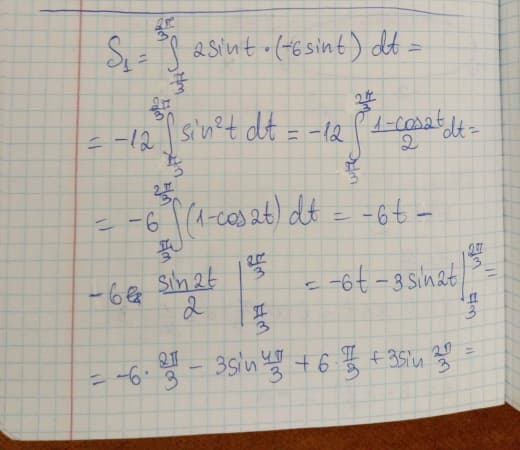 S₁ = ∫_{π/3}^{2π/3} 2sint · (-6sint) dt =
= -12 ∫_{π/3}^{2π/3} sin²t dt = -12 ∫_{π/3}^{2π/3} (1-cos2t)/2 dt =
= -6 ∫_{π/3}^{2π/3} (1-cos2t) dt = -6t -
-6 sin2t/2 |_{π/3}^{2π/3} = -6t - 3sin2t |_{π/3}^{2π/3} =
= -6 · 2π/3 - 3sin 4π/3 + 6 · π/3 + 3sin 2π/3 =